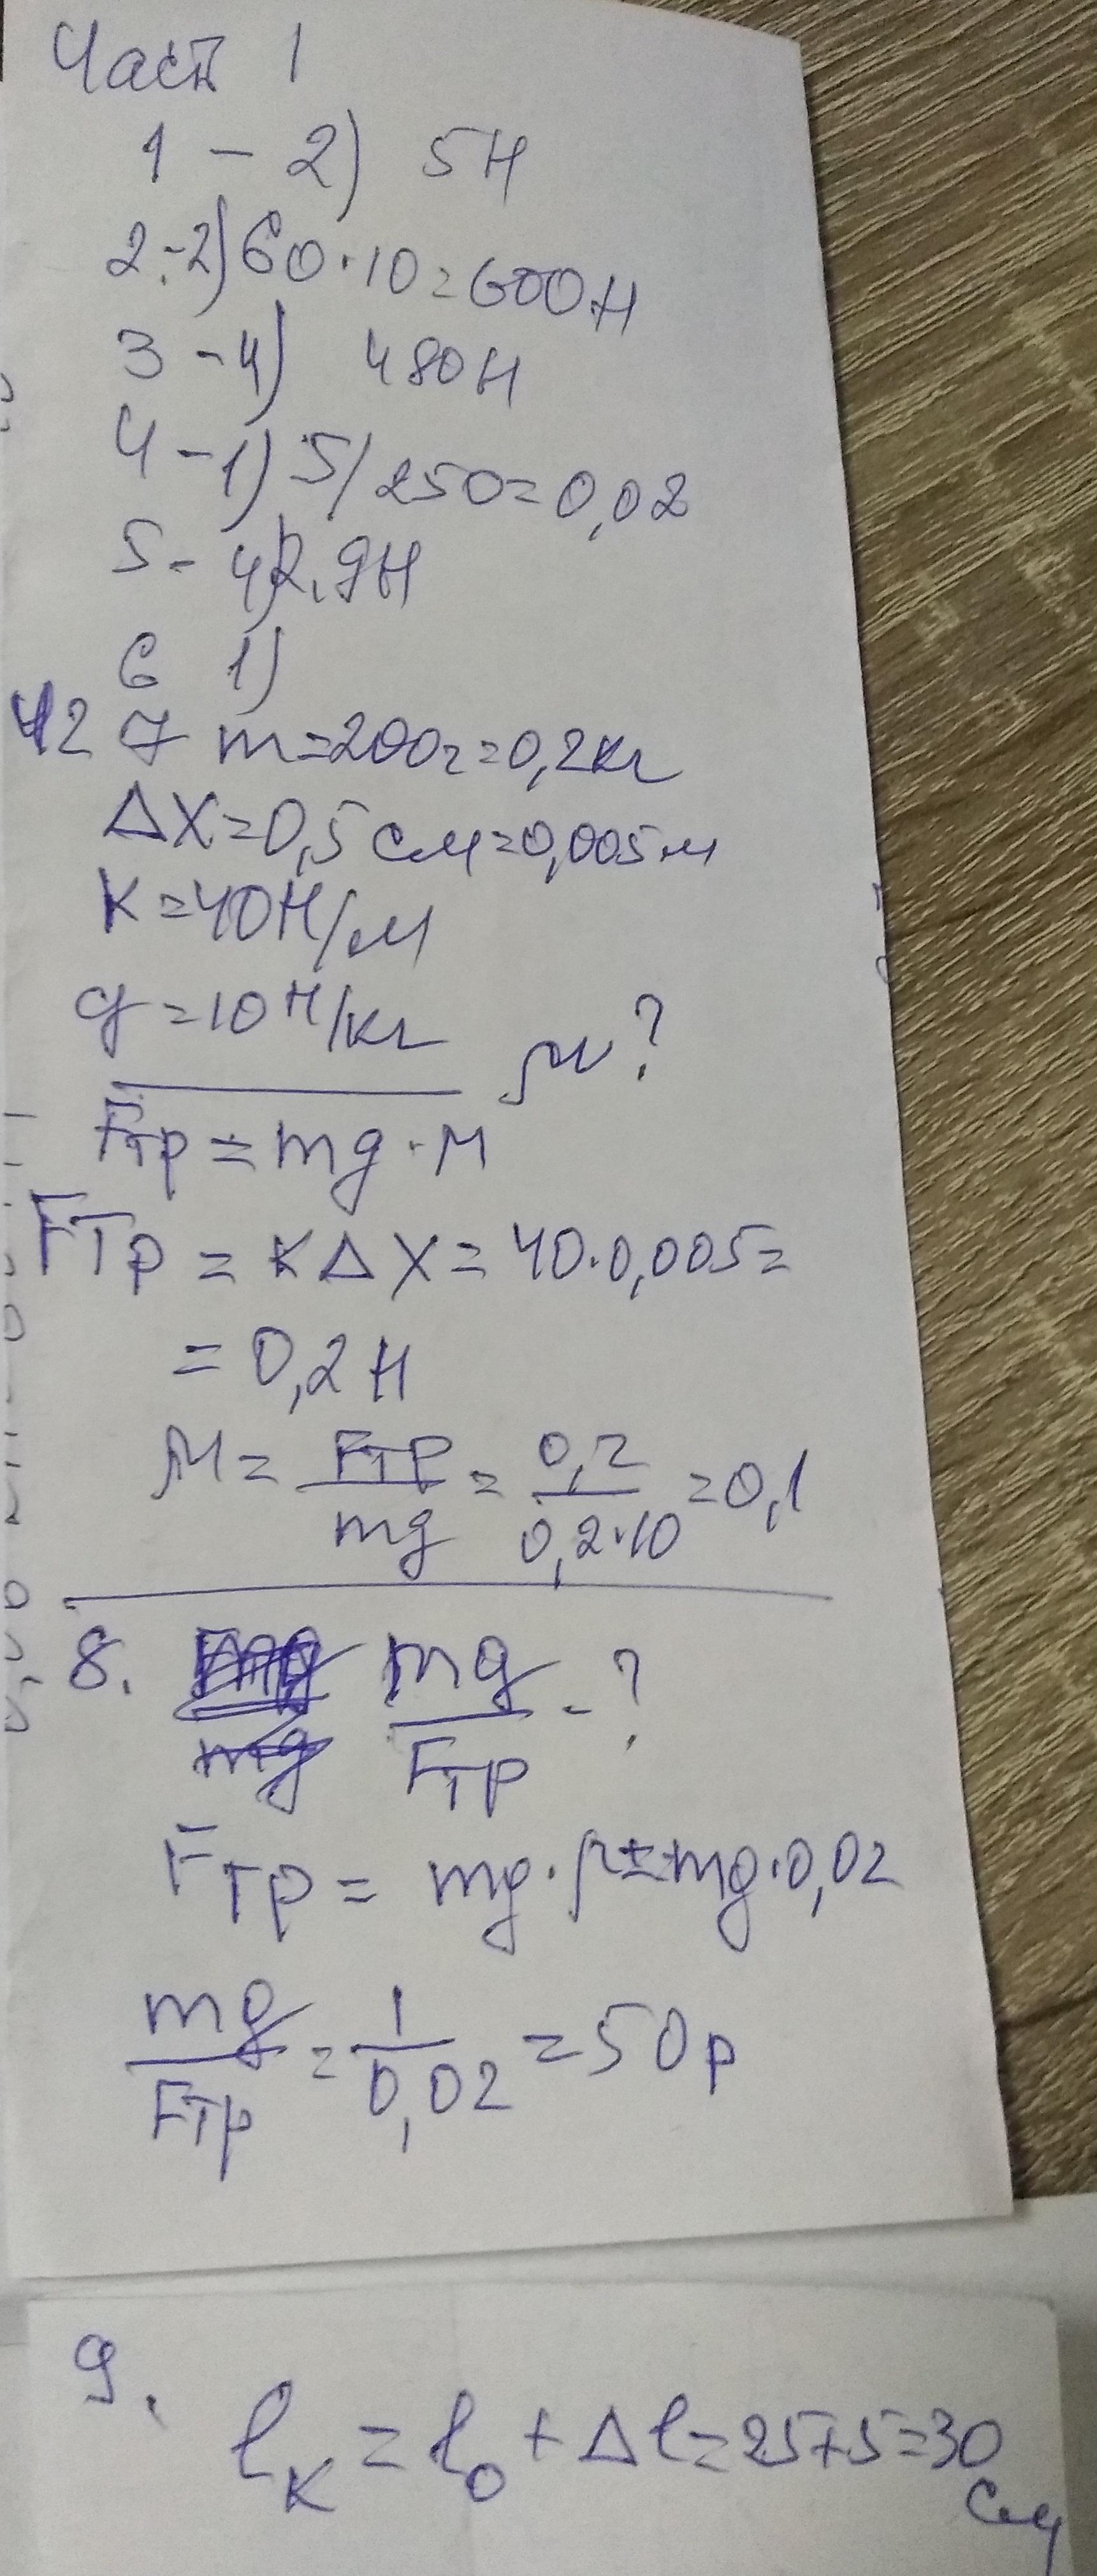 Часть 1
1 - 2) 5Н
2.-2) 60·10=600Н
3 -4) 480Н
4 -1) 5/250=0,02
5 - 4) 2,9Н
6 1)
Ч2 7 m=200г=0,2кг
ΔX=0,5см=0,005м
K=40Н/м
g=10Н/кг μ?
Fтр=mg·μ
Fтр=KΔX=40·0,005=
=0,2Н
μ=Fтр/mg=0,2/0,2·10=0,1
8. mg/Fтр-?
Fтр=mg·μ=mg·0,02
mg/Fтр=1/0,02=50р
9.
lк=l₀+Δl=25+5=30
см